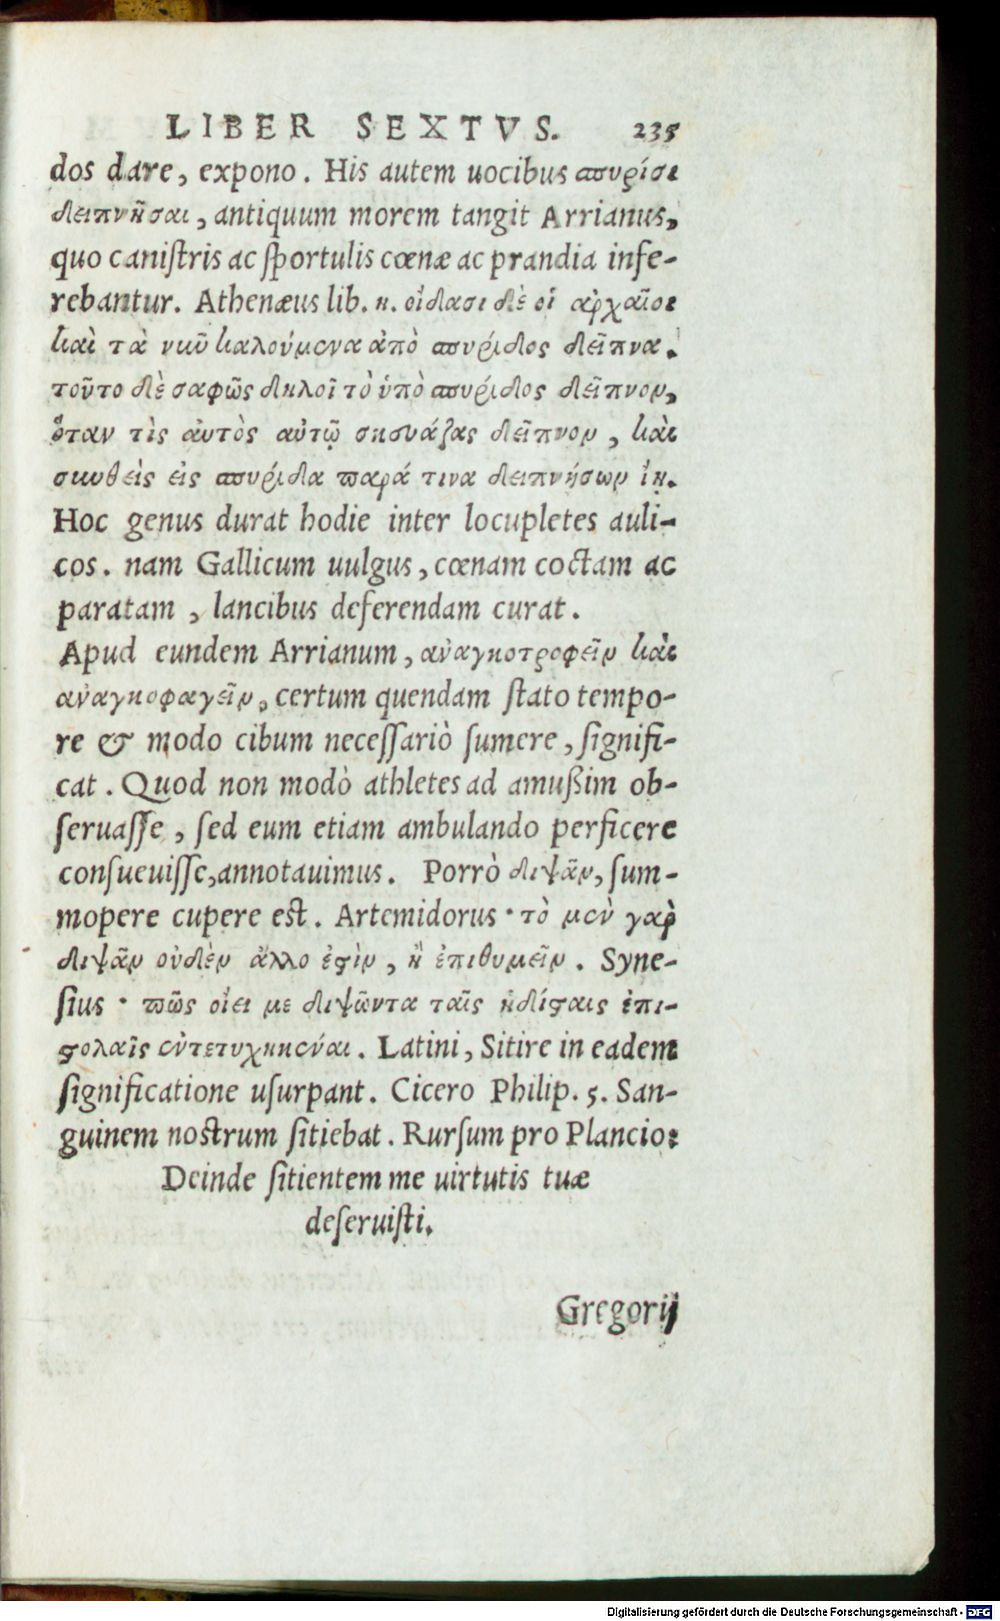 LIBER SEXTVS. 235
dos dare, expono. His autem uocibus σπυρίσι
δειπνῆσαι, antiquum morem tangit Arrianus,
quo caniſtris ac ſportulis cœnæ ac prandia infe-
rebantur. Athenæus lib. η. οἴδασι δὲ οἱ ἀρχαῖοι
καὶ τὰ νιῦ καλούμενα ἀπὸ σπυρίδος δεῖπνα.
τοῦτο δὲ σαφῶς δηλοῖ τὸ ὑπὸ σπυρίδος δεῖπνον,
ὅταν τὶς αὐτὸς αὑτῷ σκευάζας δεῖπνον, καὶ
σιωθεὶς εἰς σπυρίδα παρά τινα δειπνήσων ἴῃ.
Hoc genus durat hodie inter locupletes auli-
cos. nam Gallicum uulgus, cœnam coctam ac
paratam, lancibus deferendam curat.
Apud eundem Arrianum, ἀναγκοτροφεῖν καὶ
ἀναγκοφαγεῖν, certum quendam ſtato tempo-
re & modo cibum neceſſariò ſumere, ſignifi-
cat. Quod non modò athletes ad amußim ob-
ſeruaſſe, ſed eum etiam ambulando perficere
conſueuiſſe, annotauimus. Porrò διψᾶν, ſum-
mopere cupere est. Artemidorus · τὸ μὲν γαρ
διψᾶν οὐδὲν ἄλλο ἐστὶν, ἢ ἐπιθυμεῖν. Syne-
ſius · πῶς οἴει με διψῶντα ταῖς ἡδίσταις ἐπι-
στολαῖς ἐντετυχηκέναι. Latini, Sitire in eadem
ſignificatione uſurpant. Cicero Philip. 5. San-
guinem nostrum ſitiebat. Rurſum pro Plancio:
Deinde ſitientem me uirtutis tuæ
deſeruiſti.
Gregorij
Digitalisierung gefördert durch die Deutsche Forschungsgemeinschaft - DFG